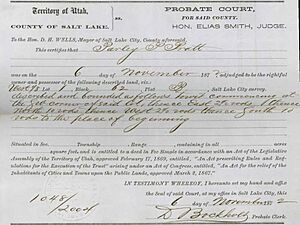 Territory of Utah,
COUNTY OF SALT LAKE.
ss.
PROBATE COURT,
FOR SAID COUNTY.
HON. ELIAS SMITH, JUDGE.
To the Hon. D. H. WELLS, Mayor of Salt Lake City, County aforesaid.
This certifies that Parley P Pratt
was on the 6 day of November 187 adjudged to be the rightful
owner and possessor of the following described land, viz:
Lot 1 Block 62 Salt Lake City survey.
Bounded as follows Commencing at
the of said Lot thence East 20 rods thence
North rods thence West 20 rods thence South
rods to the place of beginning
Situated in Sec. Township Containing in all an area of acres
square feet, and is entitled to a deed in Fee Simple in accordance with an Act of the Legislative
Assembly of the Territory of Utah, approved February 17, 1869, entitled, "An Act prescribing Rules and Regulations
for the Execution of the Trust arising under an Act of Congress, entitled, 'An Act for the relief of the
Inhabitants of Cities and Towns upon the Public Lands, approved March 2, 1867.'"
IN TESTIMONY WHEREOF, I hereunto set my hand and affix
the Seal of said Court, at my office in Salt Lake City, this
6 day of November 1872
D Bockholt
Probate Clerk.